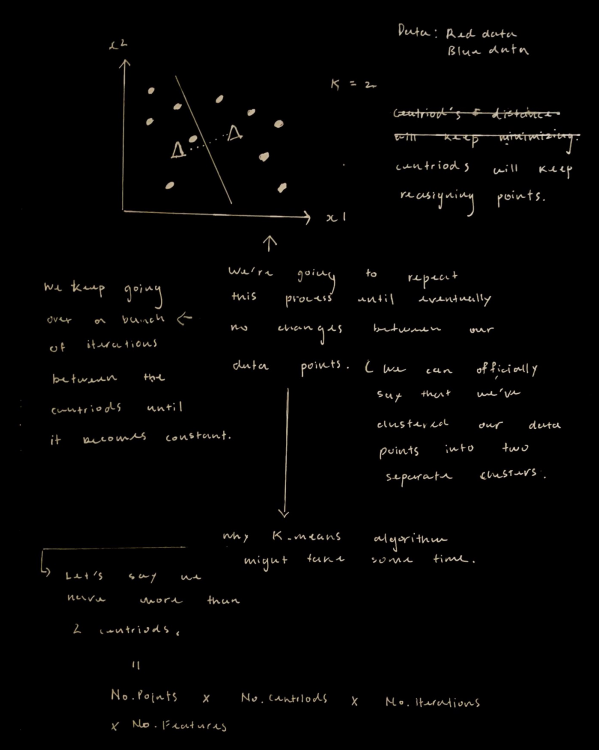 x2
Data: Red data
Blue data
K = 2
centriod's & distance
will keep minimizing.
centriods will keep
reasigning points.
Δ
Δ
x1
We're going to repeat
this process until eventually
no changes between our
data points. (we can officially
say that we've
clustered our data
points into two
separate clusters.
We keep going
over a bunch
of iterations
between the
centriods until
it becomes constant.
why K-means algorithm
might take some time.
Let's say we
have more than
2 centriods,
No.Points x No.Centriods x No.Iterations
x No.Features